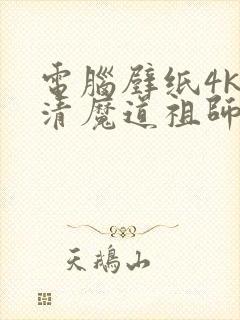 電腦壁纸4K
清魔道祖師
天鵝山